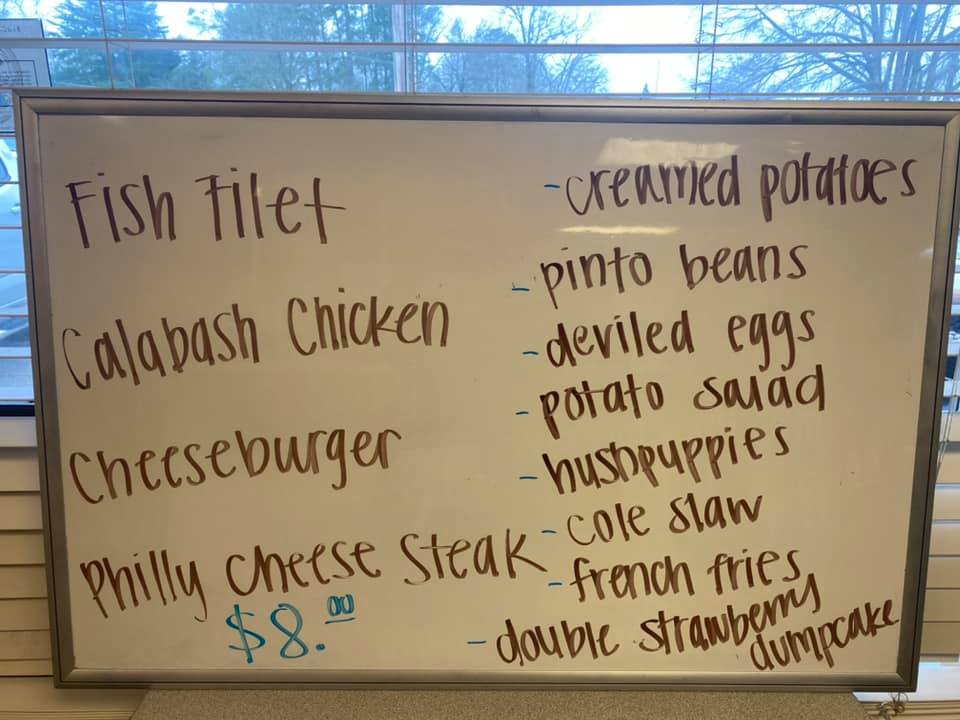 Fish Filet
Calabash Chicken
Cheeseburger
Philly Cheese Steak
$8.00
- creamed potatoes
- pinto beans
- deviled eggs
- potato salad
- hushpuppies
- cole slaw
- french fries
- double strawberry
dumpcake